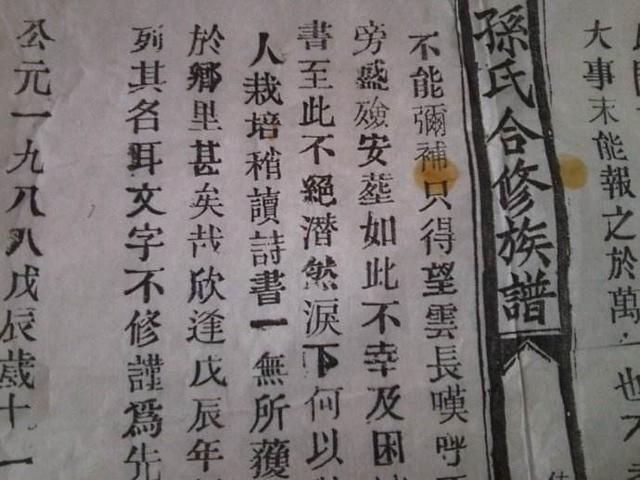 大事末能報之於萬
也
孫氏合修族譜
不能彌補只得望雲長嘆呼
旁盛殮安塟如此不幸及困
書至此不絕潸然淚下何以
人栽培稍讀詩書一無所獲
於鄉里甚矣哉欣逢戊辰年
列其名耳文字不修謹爲先
公元一九八八戊辰歲十一